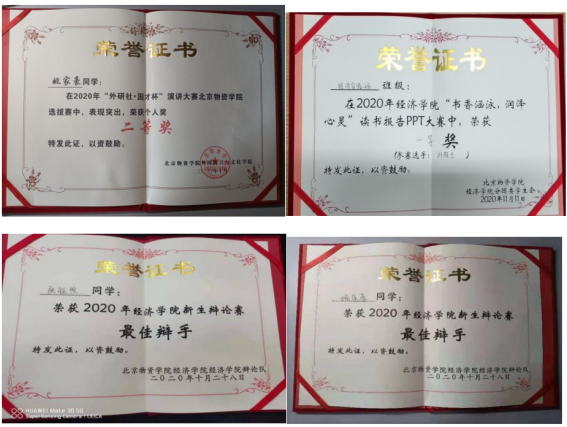 荣誉证书
姚家豪同学：
在2020年“外研社·国才杯”演讲大赛北京物资学院
选拔赛中，表现突出，荣获个人奖
二等奖
特发此证，以资鼓励。
荣誉证书
班级：
在2020年经济学院“书香涵泳，润泽
心灵”读书报告PPT大赛中，荣获
一等 奖
(参赛选手：
特发此证，以资鼓励。
北京物资学院
经济学院分团委学生会
2020年11月11日
荣誉证书
同学：
荣获2020年经济学院新生辩论赛
最佳辩手
特发此证，以资鼓励。
北京物资学院经济学院经济学院辩论队
二〇二〇年十月二十八日
HUAWEI Mate 30 5G
荣誉证书
同学：
荣获2020年经济学院新生辩论赛
最佳辩手
特发此证，以资鼓励。
北京物资学院经济学院经济学院辩论队
二〇二〇年十月二十八日